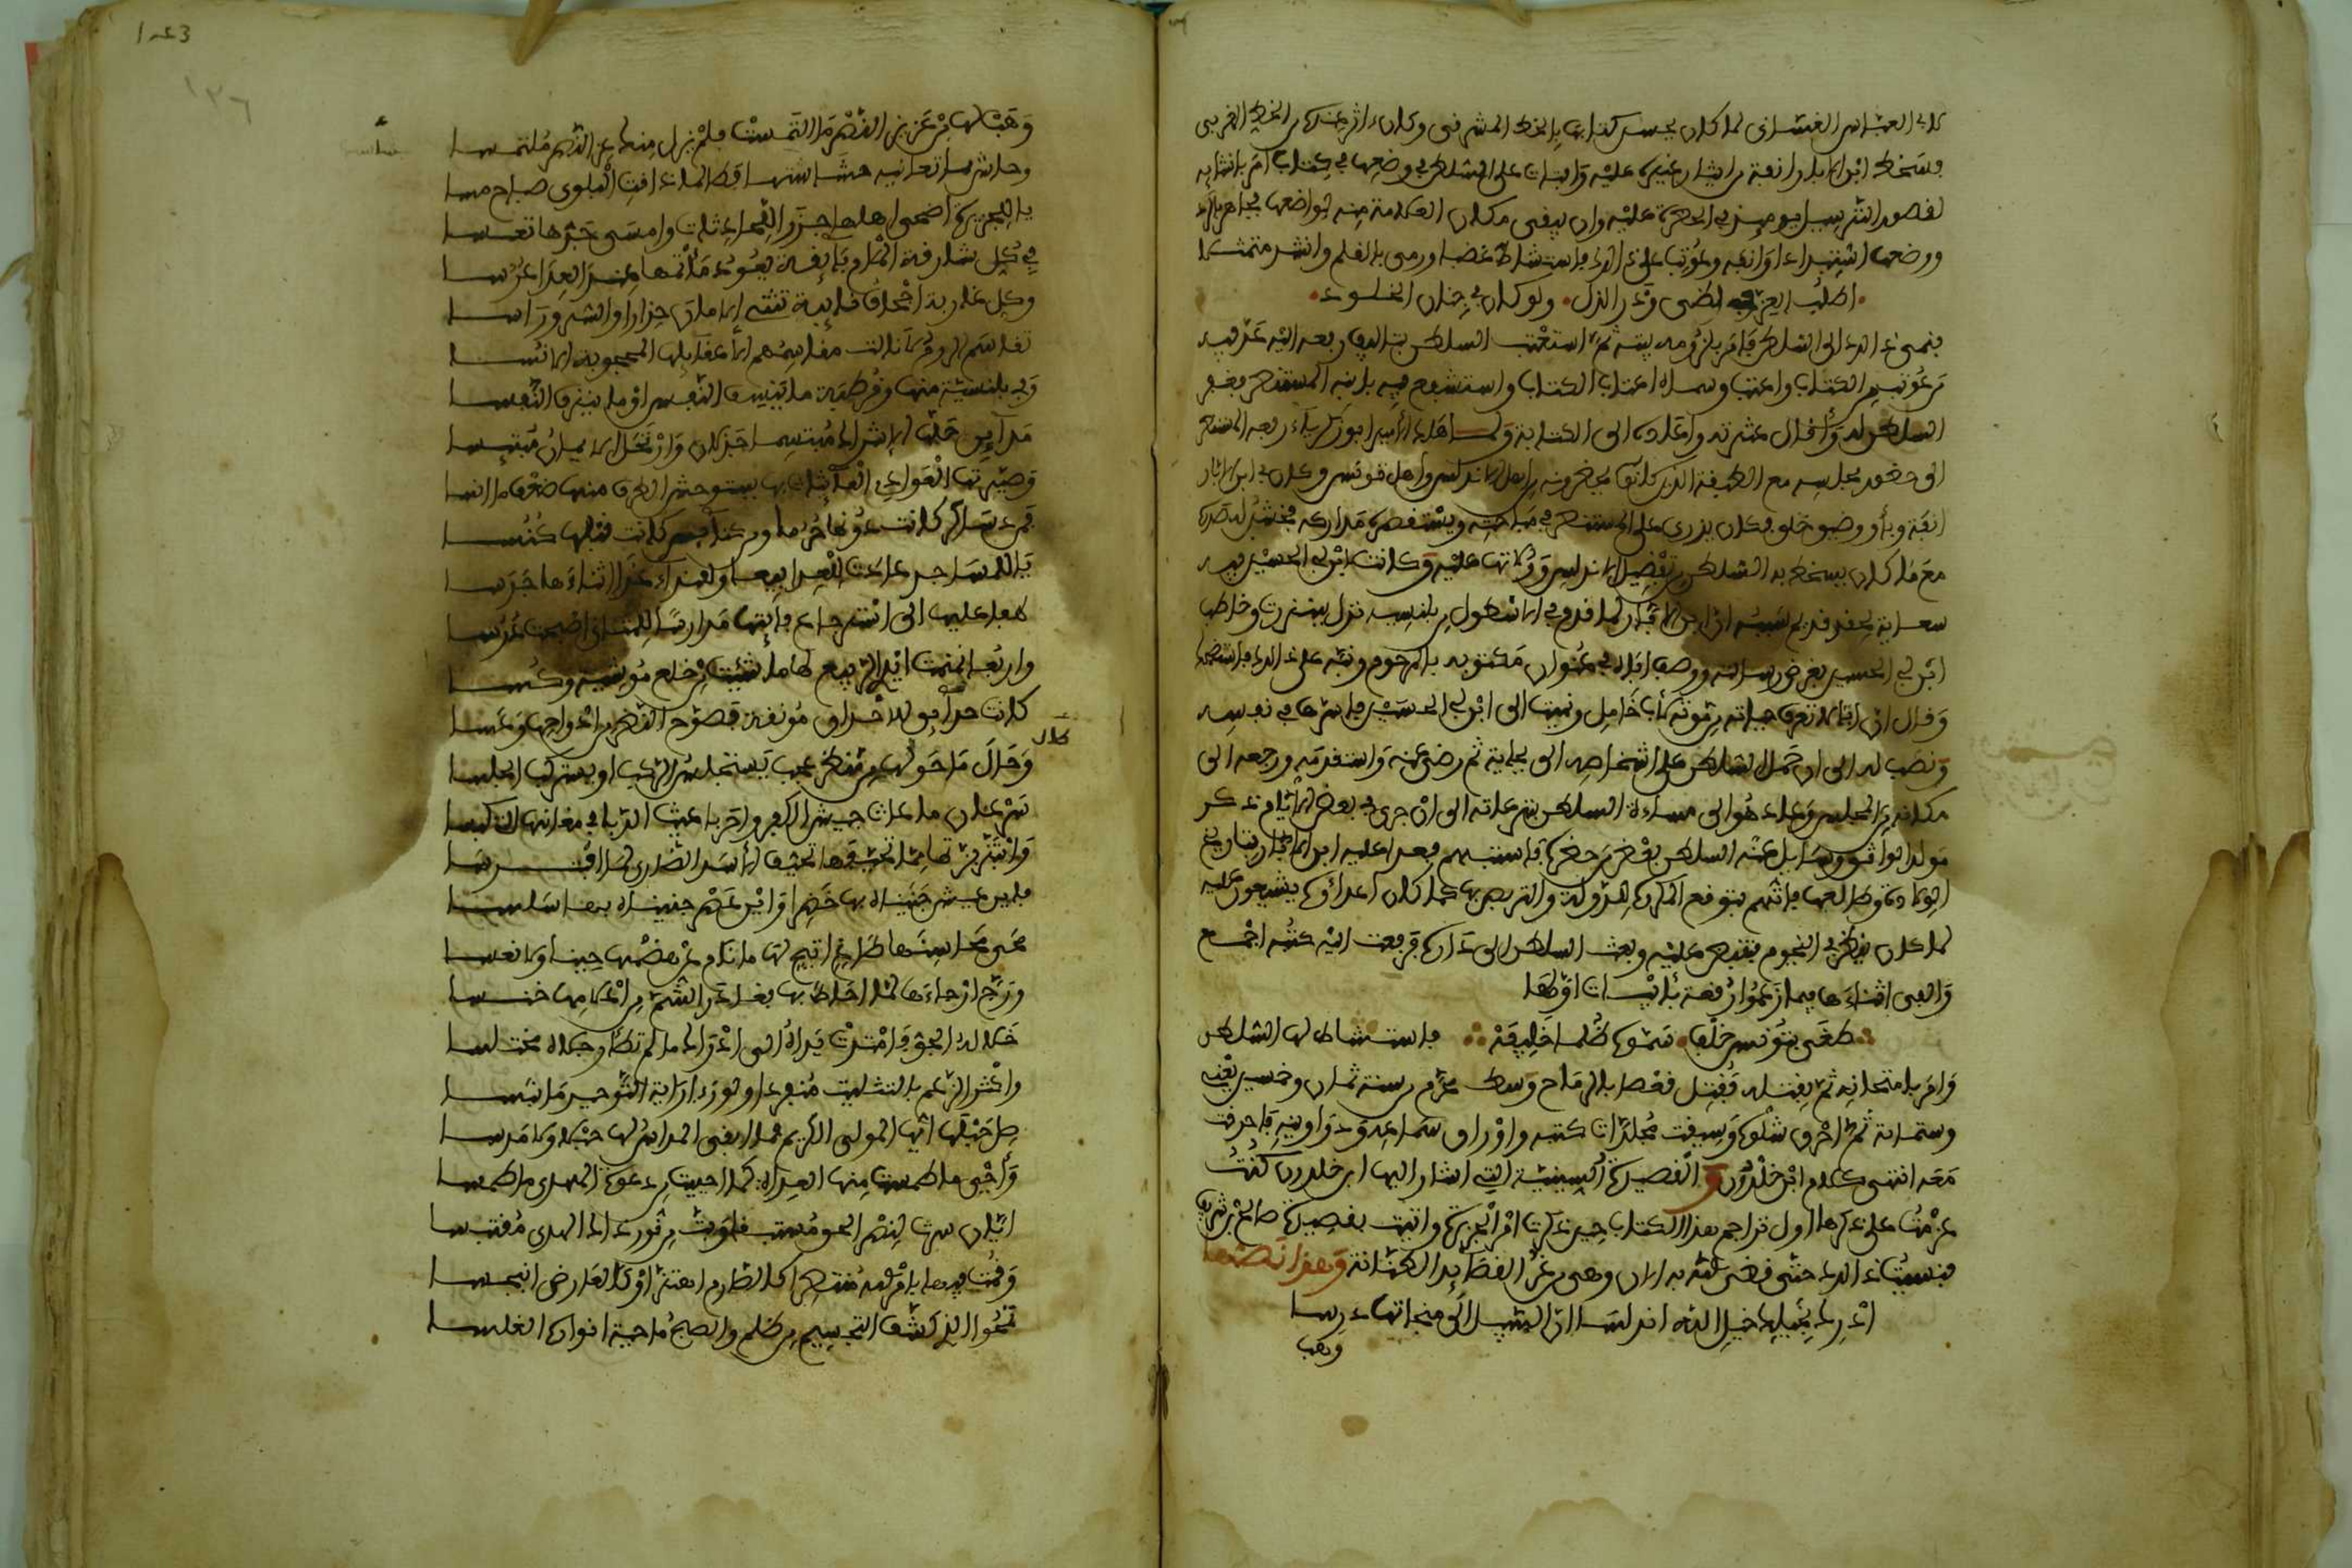 لابي العباس الغساني لما كان يحسن كتابها بالخط المشرقي وكان ءاثر عنده من الخط المغربي
فسخط ابن الابار انفة من ايثار غيره عليه وافتات على السلطان في وضعها في كتاب امر بانشائه
لقصور الترسيل يومئذ في الحضرة عليه وان يبقى مكان العلامة منه لواضعها فجاهر بالرد
ووضعها استبدادا وانفة وعوتب على ذالك فاستشاط غضبا ورمى بالقلم وانشد متمثلا
اطلب العز في لظى وذر الذل ولو كان في جنان الخلود
فنمي ذالك الى السلطان فامر بلزومه بيته ثم استعتب السلطان بتاليف رفعه اليه عد فيه
من عوتب من الكتاب واعتب وسماه اعتاب الكتاب واستشفع فيه بابنه المستنصر فغفر
السلطان له واقال عثرته واعاده الى الكتابة ولما هلك الامير ابو زكرياء رفعه المستنصر
الى حضور مجلسه مع الطبقة الذين كانوا يحضرونه من اهل الاندلس واهل تونس وكان في ابن الابار
انفة وبأو وضيق خلق فكان يزري على المستنصر في مباحثه ويستقصره في مداركه فخشن له صدره
مع ما كان يسخط به السلطان من تفضيل الاندلس وولاتها عليه وكانت لابن ابي الحسين فيه
سعاية لحقد قديم سببه ان ابن الابار لما قدم في الاسطول من بلنسية نزل ببنزرت وخاطب
ابن ابي الحسين بغرض رسالته ووصف اباه في عنوان مكتوبه بالمرحوم ونبه على ذالك فاستضحك
وقال ان ابا لا تعرف حياته من موته لأب خامل ونميت الى ابن ابي الحسين فاسرها في نفسه
ونصب له الى ان حمل السلطان على اشخاصه الى بجاية ثم رضي عنه واستقدمه ورجعه الى
مكانه من المجلس وعاد هو الى مساءة السلطان بنزعاته الى ان جرى في بعض الايام ذكر
مولد الواثق وسايل عنه السلطان بعض من حضره فاستبهم فعدا عليه ابن الابار بتاريخ
الولادة وطالعها فاتهم بتوقع المكروه للدولة والتربص بها كما كان اعداؤه يشيعون عليه
لما كان ينظر في النجوم فتقبض عليه وبعث السلطان الى داره فرفعت اليه كتبه اجمع
والفى اثناءها فيما زعموا رقعة بابيات اولها
طغى بتونس خلف سموه ظلما خليفة فاستشاط لها السلطان
وامر بامتحانه ثم بقتله فقتل قعصا بالرماح وسط محرم من سنة ثمان وخمسين يعني
وستمائة ثم احرق شلوه وسيقت مجلدات كتبه واوراق سماعه ودواوينه فاحرقت
معه انتهى كلام ابن خلدون والقصيدة السينية التي اشار اليها ابن خلدون كنت
عزمت على ذكرها اول تراجم هذا الكتاب حين ذكرت امر الجزيرة واتيت بقصيدة صالح بن شريف
فنسيت ذالك حتى قضى الله به الان وهي من غر القصائد الطنانة وهذا نصها
ادرك بخيلك خيل الله اندلسا ان السبيل الى منجاتها درسا
وهب
وهب لها من عزيز النصر ما التمست فلم يزل منك عز النصر ملتمسا
وحاش مما تعانيه حشاشتها فطالما ذاقت البلوى صباح مسا
يا للجزيرة اضحى اهلها جزرا للحادثات وامسى جدها تعسا
في كل شارقة المام بائقة يعود مأتمها عند العدا عرسا
وكل غاربة اجحاف نائبة تثني الامان حذارا والسرور اسا
تقاسم الروم لا نالت مقاسمهم الا عقائلها المحجوبة الانسا
وفي بلنسية منها وقرطبة ما ينسف النفس او ما ينزف النفسا
مدائن حلها الاشراك مبتسما جذلان وارتحل الايمان مبتئسا
وصيرتها العوادي العابثات بها يستوحش الطرف منها ضعف ما انسا
فمن دساكر كانت دونها حرسا ومن كنائس كانت قبلها كنسا
يا للمساجد عادت للعدا بيعا وللنداء غدا اثناءها جرسا
لهفا عليها الى استرجاع فائتها مدارسا للمثاني اصبحت درسا
واربعا نمنمت ايدي الربيع لها ما شئت من خلع موشية وكسا
كانت حدائق للاحداق مونقة فصوح النضر من ادواحها وعسا
وحال ما حولها من منظر عجب يستجلس الركب او يستركب الجلسا
سرعان ما عاث جيش الكفر واحربا عيث الدبا في مغانيها التي كبسا
وابتز بزتها مما تحيفها تحيف الاسد الضاري لما افترسا
فاين عيش جنيناه بها خضرا واين عصر جليناه بها سلسا
محى محاسنها طاغ اتيح لها ما نام عن هضمها حينا ولا نعسا
ورج ارجاءها لما احاط بها فغادر الشم من اعلامها خنسا
خلا له الجو فامتدت يداه الى ادراك ما لم تطأ رجلاه مختلسا
واكثر الزعم بالتثليث منفردا ولو رءا راية التوحيد ما نبسا
صل حبلها ايها المولى الكريم فما ابقى المراس لها حبلا ولا مرسا
وأحي ما طمست منها العداة كما احييت من دعوة المهدي ما طمسا
ايام سرت لنصر الحق مستبقا وبت من نور ذاك الهدي مقتبسا
وقمت فيها بامر الله منتصرا كالصارم اهتز او كالعارض انبجسا
تمحو الذي كتب التجسيم من ظلم والصبح ماحية انواره الغلسا